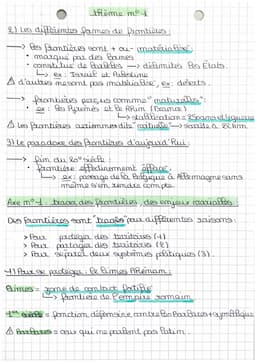 thème n°1
2) Les différentes formes de frontières :
→ Des frontières sont + ou - matérialisé :
• marqué par des bornes
• constitué de → délimites des États.
↳ ex : Israël et Palestine
⚠ d'autres ne sont pas matérialisé, ex : déserts.
→ frontières perçus comme "naturelles" :
• ex : les Pyrénés et le Rhin (France)
↳ stabilisation =
⚠ Les frontières actionnent dits "naturelle" → 
3) Le paradoxe des frontières d'aujourd'hui :
→ fin du 20e siècle :
• frontière effacé :
↳ ex : passage de la Belgique à l'Allemagne sans
même s'en rendre compte.
Axe n°1 : tracer des frontières, des enjeux
Des frontières sont "tracés" pour différentes raisons :
> Pour protéger des territoires (1)
> Pour partager des territoires (2)
> Pour séparer deux systèmes politiques (3).
1) Pour se protéger : Le limes Rhénan :
Limes = zone de contact
↳ frontière de l'empire romain
= fonction défensive contre les Barbares + symbolique
⚠ Barbares = ceux qui ne parlent pas latin.